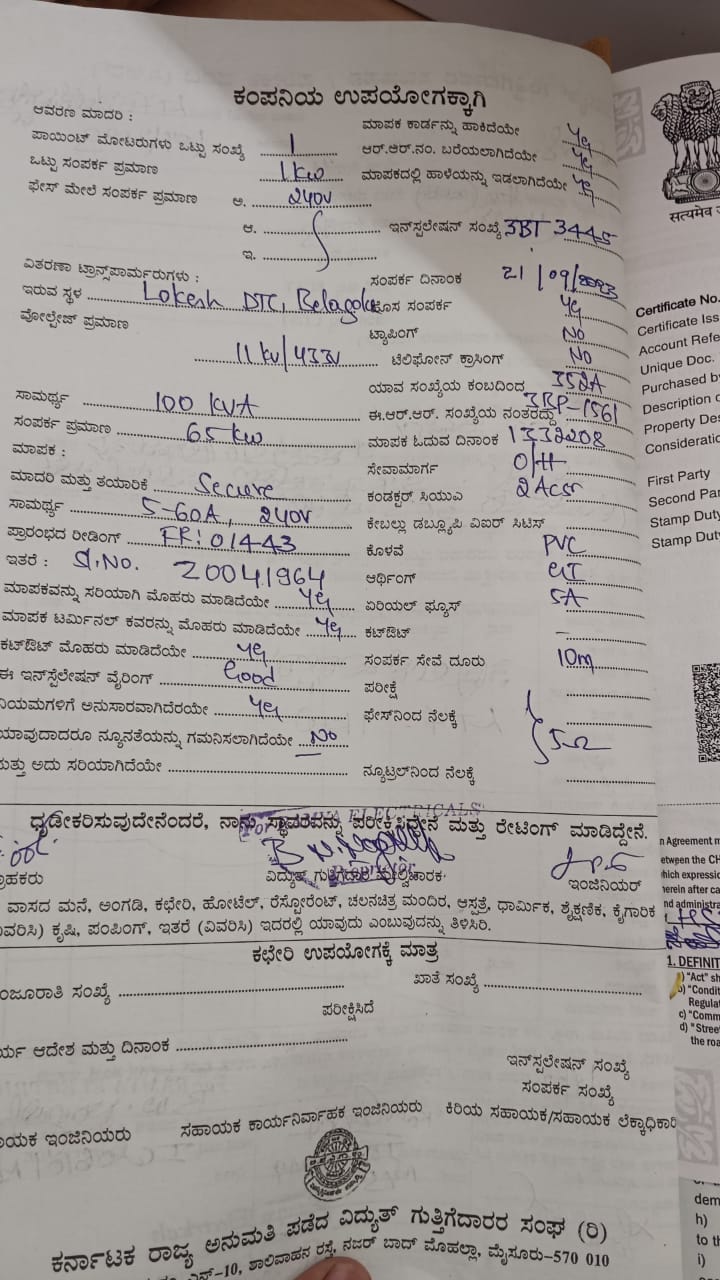 ಕಂಪನಿಯ ಉಪಯೋಗಕ್ಕಾಗಿ
ಆವರಣ ಮಾದರಿ :
ಮಾಪಕ ಕಾರ್ಡನ್ನು ಹಾಕಿದೆಯೇ Yes
ಪಾಯಿಂಟ್ ಮೋಟರುಗಳು ಒಟ್ಟು ಸಂಖ್ಯೆ 1
ಆರ್.ಆರ್.ನಂ. ಬರೆಯಲಾಗಿದೆಯೇ Yes
ಒಟ್ಟು ಸಂಪರ್ಕ ಪ್ರಮಾಣ 1 kw
ಮಾಪಕದಲ್ಲಿ ಹಾಳೆಯನ್ನು ಇಡಲಾಗಿದೆಯೇ Yes
ಫೇಸ್ ಮೇಲೆ ಸಂಪರ್ಕ ಪ್ರಮಾಣ ಅ. 240V
ಆ. ಇನ್‌ಸ್ಪಲೇಷನ್ ಸಂಖ್ಯೆ 3BT 3445
ಇ.
ವಿತರಣಾ ಟ್ರಾನ್ಸ್‌ಪಾರ್ಮರುಗಳು :
ಸಂಪರ್ಕ ದಿನಾಂಕ 21/09/2023
ಇರುವ ಸ್ಥಳ Lokesh DTC, Belagola
ಹೊಸ ಸಂಪರ್ಕ Yes
ವೋಲ್ಟೇಜ್ ಪ್ರಮಾಣ 11 kv/433v
ಟ್ಯಾಪಿಂಗ್ No
ಟೆಲಿಫೋನ್ ಕ್ರಾಸಿಂಗ್ No
ಯಾವ ಸಂಖ್ಯೆಯ ಕಂಬದಿಂದ 352A
ಸಾಮರ್ಥ್ಯ 100 KVA
ಈ.ಆರ್.ಆರ್. ಸಂಖ್ಯೆಯ ನಂತರದ್ದು 3BP-1561
ಸಂಪರ್ಕ ಪ್ರಮಾಣ 65 kw
ಮಾಪಕ ಓದುವ ದಿನಾಂಕ 1332208
ಮಾಪಕ :
ಸೇವಾಮಾರ್ಗ O/H
ಮಾದರಿ ಮತ್ತು ತಯಾರಿಕೆ Secure
ಕಂಡಕ್ಟರ್ ಸಿಯುಎ 2 Acsr
ಸಾಮರ್ಥ್ಯ 5-60A, 240V
ಕೇಬಲ್ಲು ಡಬ್ಲ್ಯೂಪಿ ವಿಐರ್ ಸಿಟಿಸ್
ಪ್ರಾರಂಭದ ರೀಡಿಂಗ್ FR: 01443
ಕೊಳವೆ PVC
ಇತರೆ : Sl.No. 20041964
ಆರ್ಥಿಂಗ್ GI
ಮಾಪಕವನ್ನು ಸರಿಯಾಗಿ ಮೊಹರು ಮಾಡಿದೆಯೇ Yes
ಏರಿಯಲ್ ಫ್ಯೂಸ್ 5A
ಮಾಪಕ ಟರ್ಮಿನಲ್ ಕವರನ್ನು ಮೊಹರು ಮಾಡಿದೆಯೇ Yes
ಕಟ್‌ಔಟ್ –
ಕಟ್‌ಔಟ್ ಮೊಹರು ಮಾಡಿದೆಯೇ Yes
ಸಂಪರ್ಕ ಸೇವೆ ದೂರು 10m
ಈ ಇನ್‌ಸ್ಪೆಲೇಷನ್ ವೈರಿಂಗ್ Good
ಪರೀಕ್ಷೆ
ನಿಯಮಗಳಿಗೆ ಅನುಸಾರವಾಗಿದೆರಯೇ Yes
ಫೇಸ್‌ನಿಂದ ನೆಲಕ್ಕೆ 5Ω
ಯಾವುದಾದರೂ ನ್ಯೂನತೆಯನ್ನು ಗಮನಿಸಲಾಗಿದೆಯೇ No
ಮತ್ತು ಅದು ಸರಿಯಾಗಿದೆಯೇ
ನ್ಯೂಟ್ರಲ್‌ನಿಂದ ನೆಲಕ್ಕೆ
ELECTRICALS
ಧೃಡೀಕರಿಸುವುದೇನೆಂದರೆ, ನಾನು ಸ್ಥಾವರವನ್ನು ಪರೀಕ್ಷಿಸಿದ್ದೇನೆ ಮತ್ತು ರೇಟಿಂಗ್ ಮಾಡಿದ್ದೇನೆ.
ಗ್ರಾಹಕರು
ವಿದ್ಯುತ್ ಗುತ್ತಿಗೆದಾರ ಮೇಲ್ವಿಚಾರಕ
ಇಂಜಿನಿಯರ್
ವಾಸದ ಮನೆ, ಅಂಗಡಿ, ಕಛೇರಿ, ಹೋಟೆಲ್, ರೆಸ್ಟೋರೆಂಟ್, ಚಲನಚಿತ್ರ ಮಂದಿರ, ಆಸ್ಪತ್ರೆ, ಧಾರ್ಮಿಕ, ಶೈಕ್ಷಣಿಕ, ಕೈಗಾರಿಕ
(ವಿವರಿಸಿ) ಕೃಷಿ, ಪಂಪಿಂಗ್, ಇತರೆ (ವಿವರಿಸಿ) ಇದರಲ್ಲಿ ಯಾವುದು ಎಂಬುವುದನ್ನು ತಿಳಿಸಿರಿ.
ಕಛೇರಿ ಉಪಯೋಗಕ್ಕೆ ಮಾತ್ರ
ಮಂಜೂರಾತಿ ಸಂಖ್ಯೆ
ಖಾತೆ ಸಂಖ್ಯೆ
ಪರೀಕ್ಷಿಸಿದೆ
ಕಾರ್ಯ ಆದೇಶ ಮತ್ತು ದಿನಾಂಕ
ಇನ್‌ಸ್ಪಲೇಷನ್ ಸಂಖ್ಯೆ
ಸಂಪರ್ಕ ಸಂಖ್ಯೆ
ಸಹಾಯಕ ಇಂಜಿನಿಯರು
ಸಹಾಯಕ ಕಾರ್ಯನಿರ್ವಾಹಕ ಇಂಜಿನಿಯರು
ಕಿರಿಯ ಸಹಾಯಕ/ಸಹಾಯಕ ಲೆಕ್ಕಾಧಿಕಾರಿ
ಕರ್ನಾಟಕ ರಾಜ್ಯ ಅನುಮತಿ ಪಡೆದ ವಿದ್ಯುತ್ ಗುತ್ತಿಗೆದಾರರ ಸಂಘ (ರಿ)
ಎನ್-10, ಶಾಲಿವಾಹನ ರಸ್ತೆ, ನಜರ್ ಬಾದ್ ಮೊಹಲ್ಲಾ, ಮೈಸೂರು-570 010
सत्यमेव
Certificate No.
Certificate Iss
Account Refe
Unique Doc.
Purchased by
Description o
Property Des
Consideratio
First Party
Second Par
Stamp Duty
Stamp Dut
n Agreement m
etween the CH
which expressio
herein after ca
nd administra
1. DEFINIT
a) "Act" sh
b) "Condit
Regulat
c) "Comm
d) "Stree
the roa
dem
h)
to th
i)